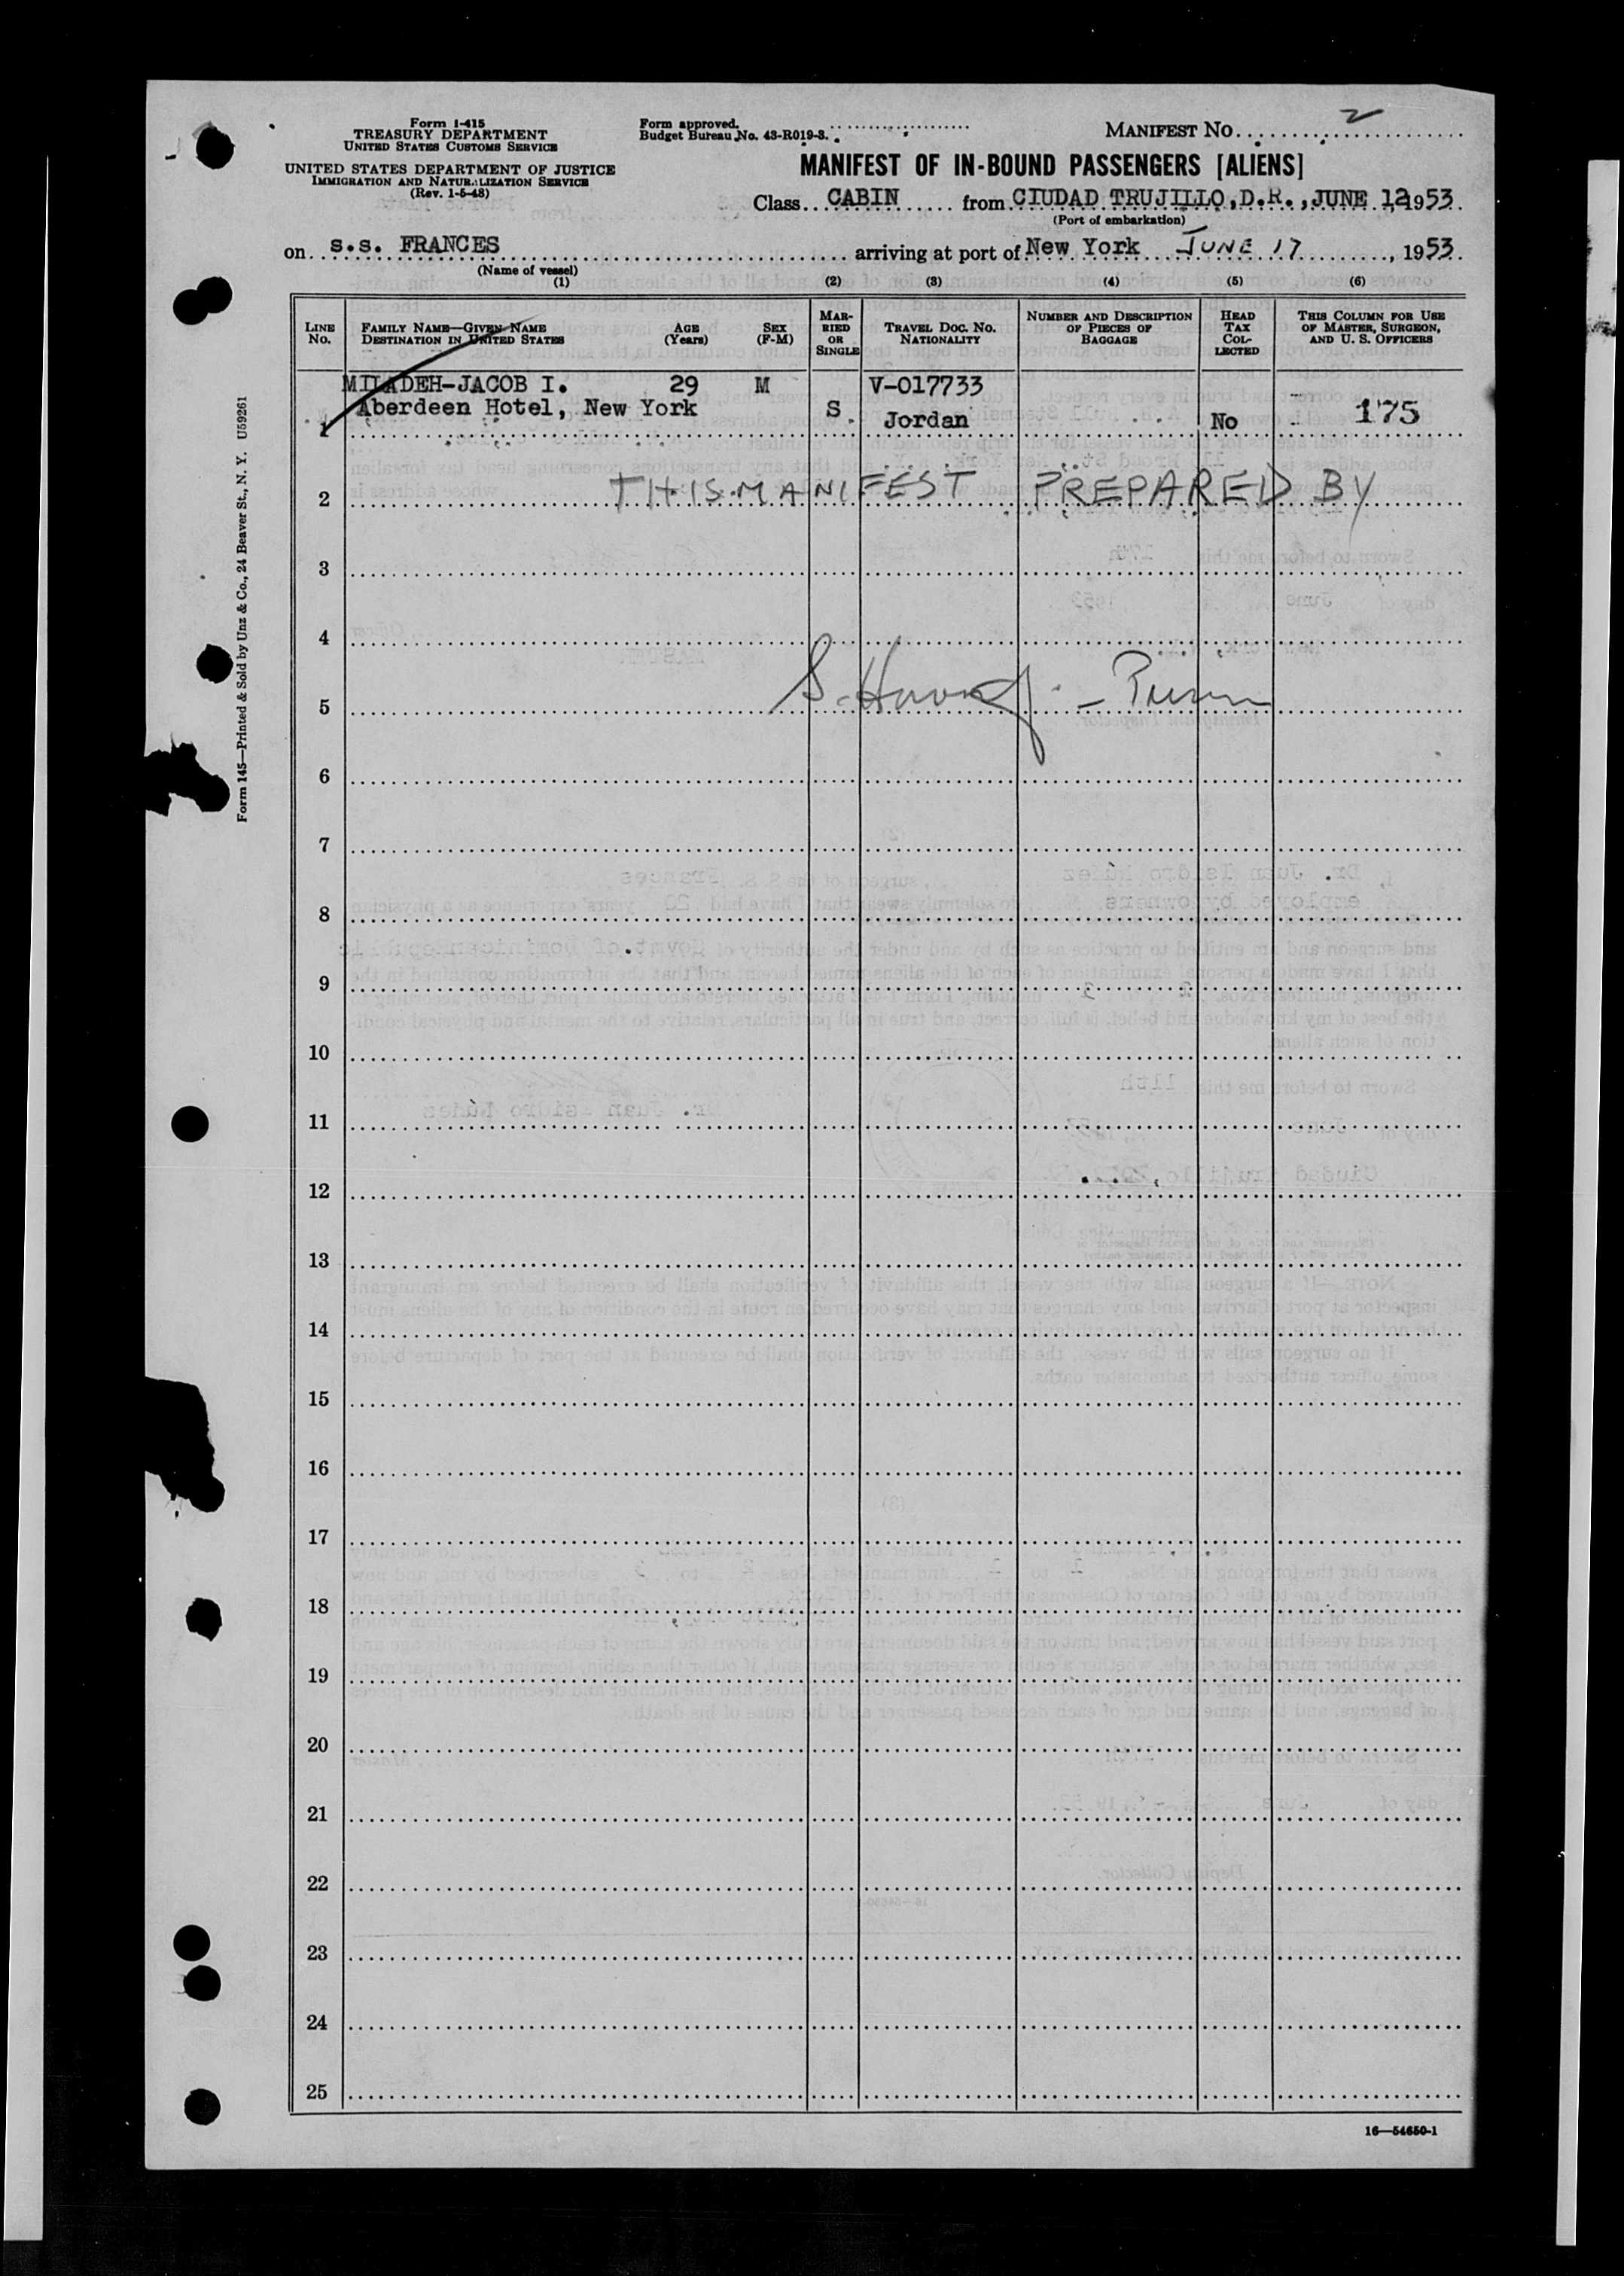 Form I-415
TREASURY DEPARTMENT
UNITED STATES CUSTOMS SERVICE
UNITED STATES DEPARTMENT OF JUSTICE
IMMIGRATION AND NATURALIZATION SERVICE
(Rev. 1-5-48)
Form approved.
Budget Bureau No. 43-R019-3.
MANIFEST NO. 2
MANIFEST OF IN-BOUND PASSENGERS [ALIENS]
Class CABIN from CIUDAD TRUJILLO, D.R., JUNE 12 1953.
(Port of embarkation)
on s.s. FRANCES arriving at port of New York JUNE 17, 1953.
(Name of vessel)
(1) (2) (3) (4) (5) (6)
LINE NO.
FAMILY NAME—GIVEN NAME
DESTINATION IN UNITED STATES
AGE (Years)
SEX (F-M)
MARRIED OR SINGLE
TRAVEL DOC. NO.
NATIONALITY
NUMBER AND DESCRIPTION OF PIECES OF BAGGAGE
HEAD TAX COLLECTED
THIS COLUMN FOR USE OF MASTER, SURGEON, AND U. S. OFFICERS
MILADEH-JACOB I. 29 M V-017733
1 Aberdeen Hotel, New York S Jordan No 175
2 THIS MANIFEST PREPARED BY
3
4
5
6
7
8
9
10
11
12
13
14
15
16
17
18
19
20
21
22
23
24
25
16—54650-1
Form 145—Printed & Sold by Unz & Co., 24 Beaver St., N. Y. U59261